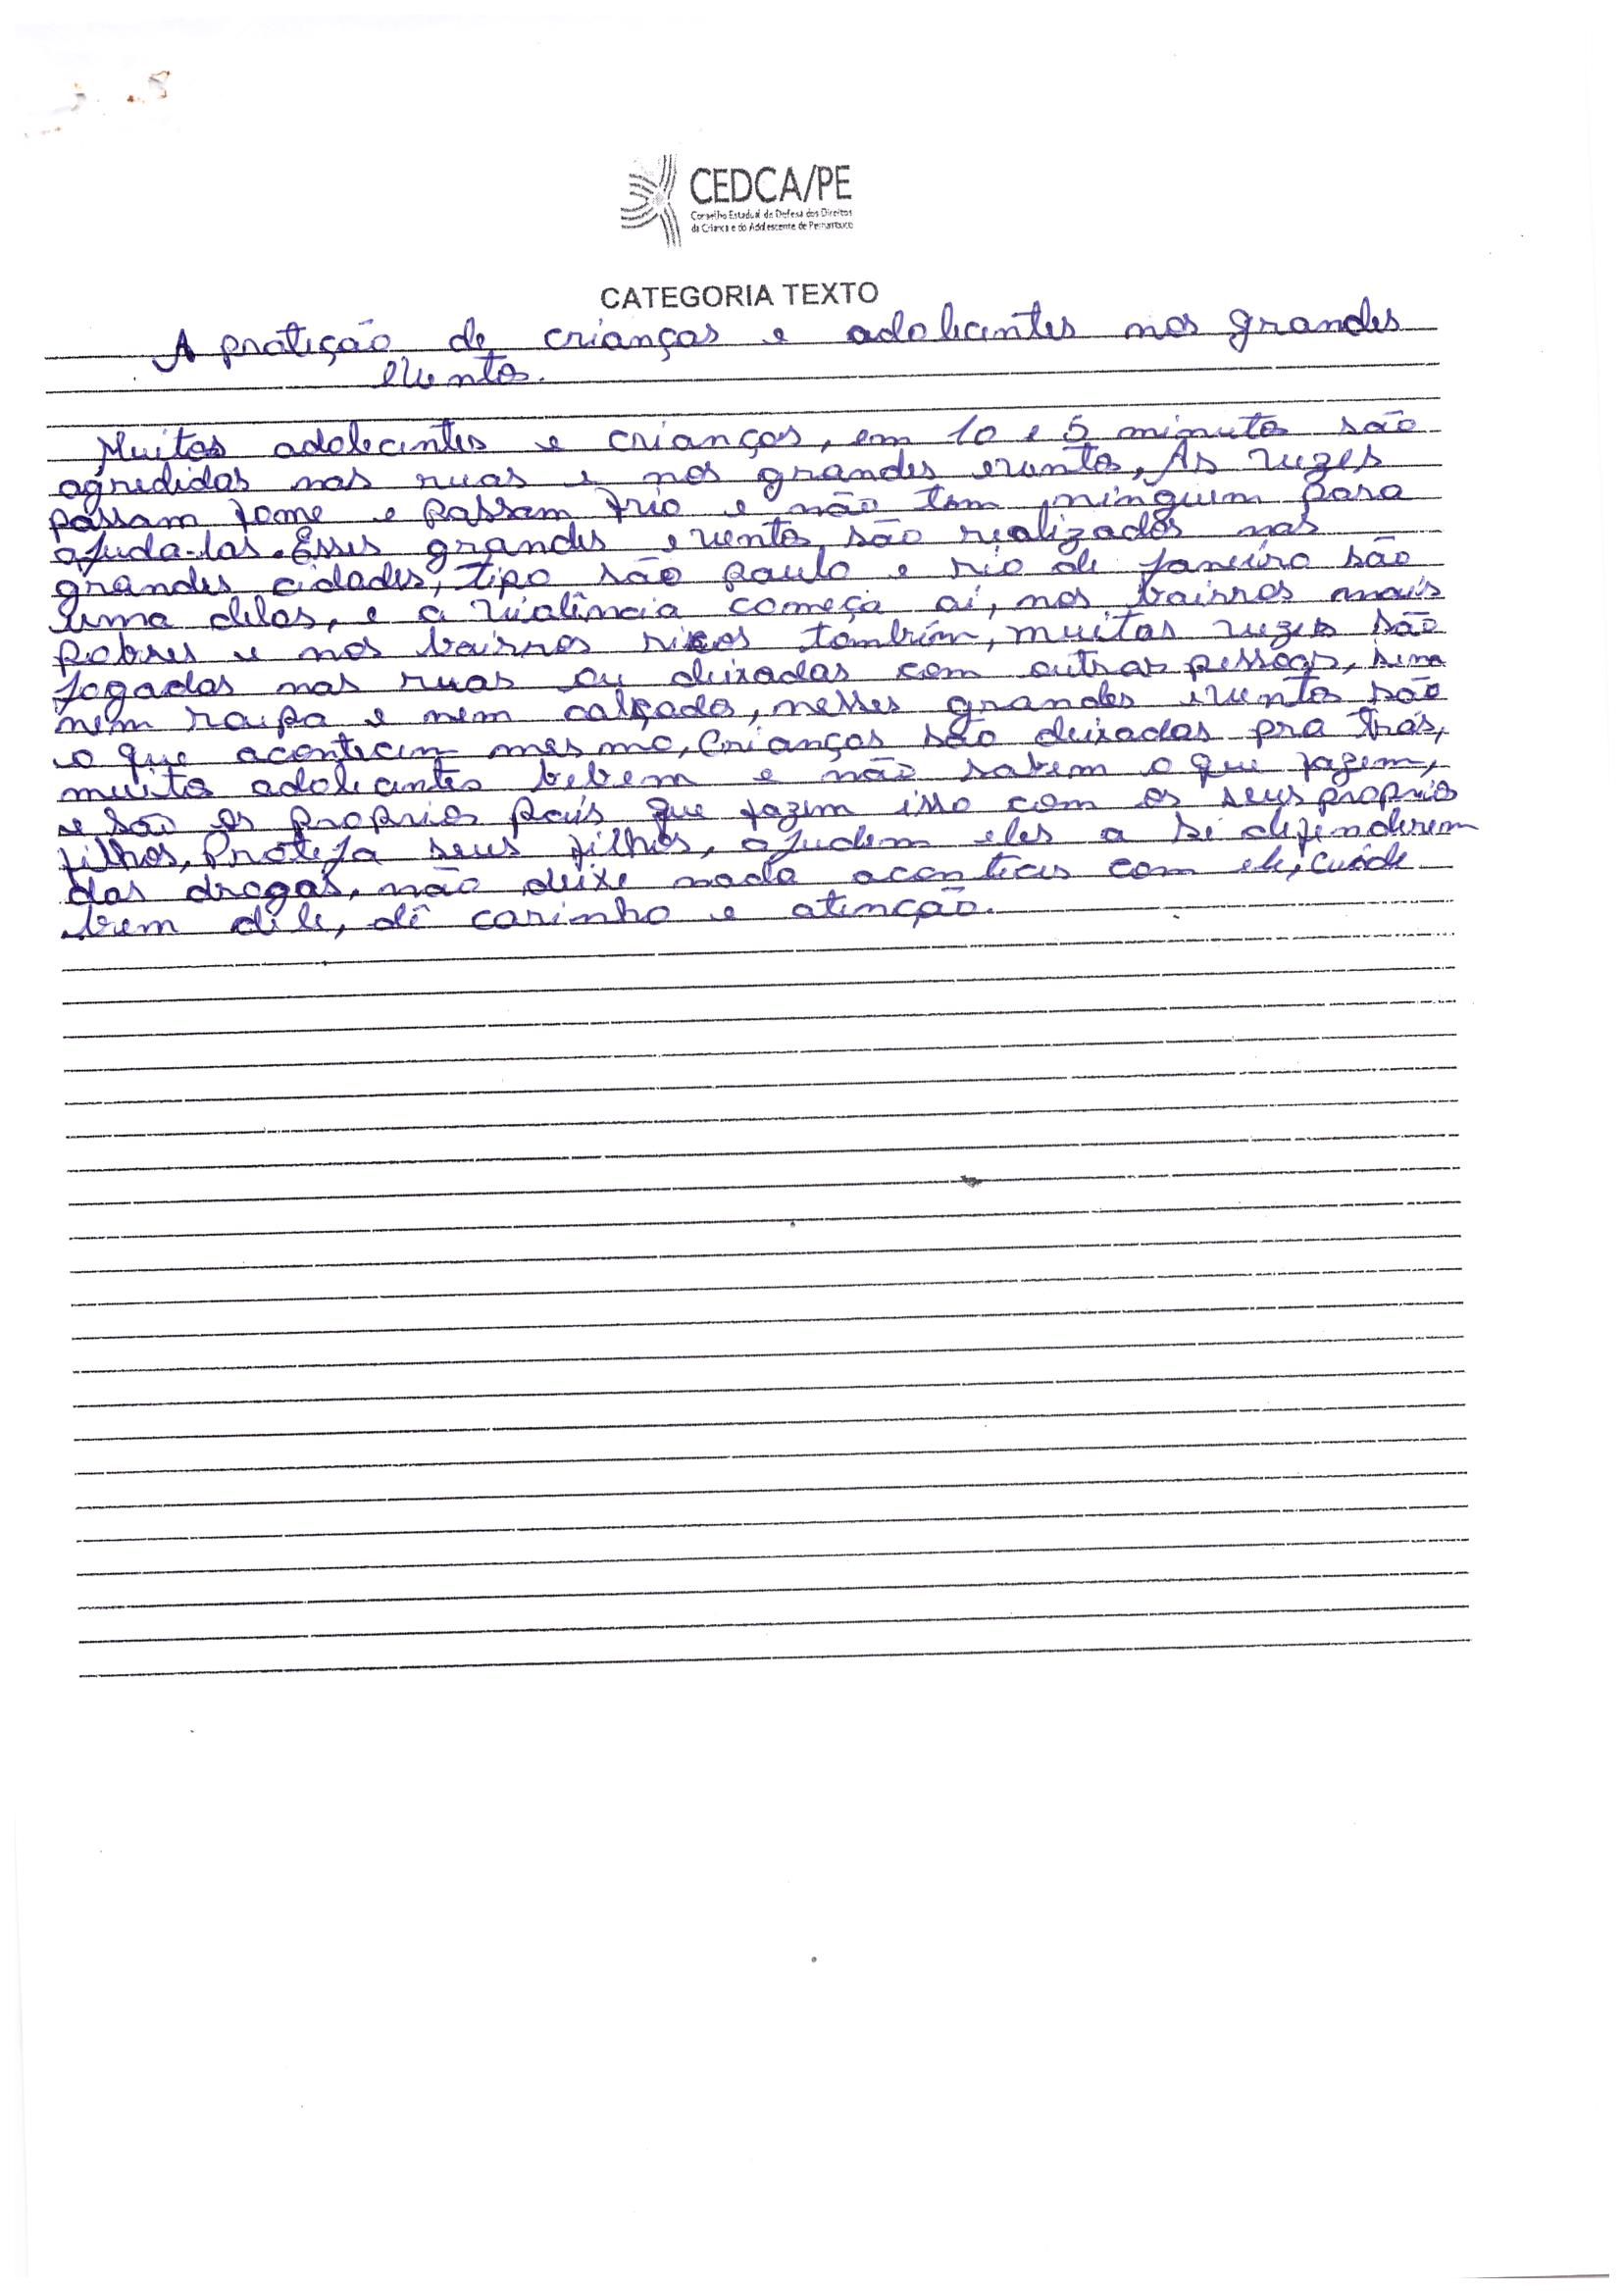 CEDCA/PE
Conselho Estadual de Defesa dos Direitos
da Criança e do Adolescente de Pernambuco
CATEGORIA TEXTO
A proteção de crianças e adolecentes nos grandes
eventos.
Muitos adolecentes e crianças, em 10 e 5 minutos são
agredidas nas ruas e nos grandes eventos, As vezes
passam fome e passam frio e não tem ninguem para
ajuda-las. Esses grandes eventos são realizados nas
grandes cidades, tipo são paulo e rio de janeiro são
uma delas, e a violência começa ai, nos bairros mais
pobres e nos bairros ricos também, muitas vezes são
jogadas nas ruas ou deixadas com outras pessoas, sem
nem roupa e nem calçado, nesses grandes eventos são
o que acontecem mesmo, Crianças são deixadas pra trás,
muitos adolecentes bebem e não sabem o que fazem,
e são os proprios pais que fazem isso com os seus proprios
filhos, Proteja seus filhos, ajudem eles a si defenderem
das drogas, não deixe nada acontecer com ele, cuide
bem dele, dê carinho e atenção.